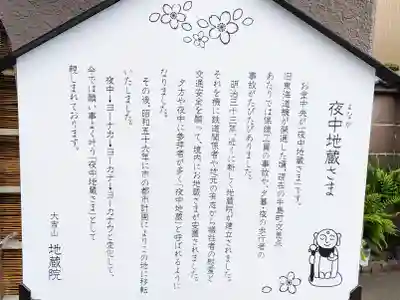 よなか
夜中地蔵さま
お堂中央が「夜中地蔵さま」です。
旧東海道線が開通した頃、現在の中島町交差点
あたりでは保線工員の事故や、夕暮・夜の歩行者の
事故がたびたびありました。
明治三十三年、近くに新しく地蔵院が建立されました。
それを機に鉄道関係者や地元の有志から犠牲者の慰霊と
交通安全を願って、境内にお地蔵さまが安置されました。
夕方や夜中に参拝者が多く「夜中地蔵」と呼ばれるように
なりました。
その後、昭和五十六年に市の都市計画によりこの地に移転
いたしました。
夜中→ヨーナカ→ヨーカナ→ヨーカナウと変化して、
今では願い事よく叶う「夜中地蔵さま」として
親しまれております。
地蔵院